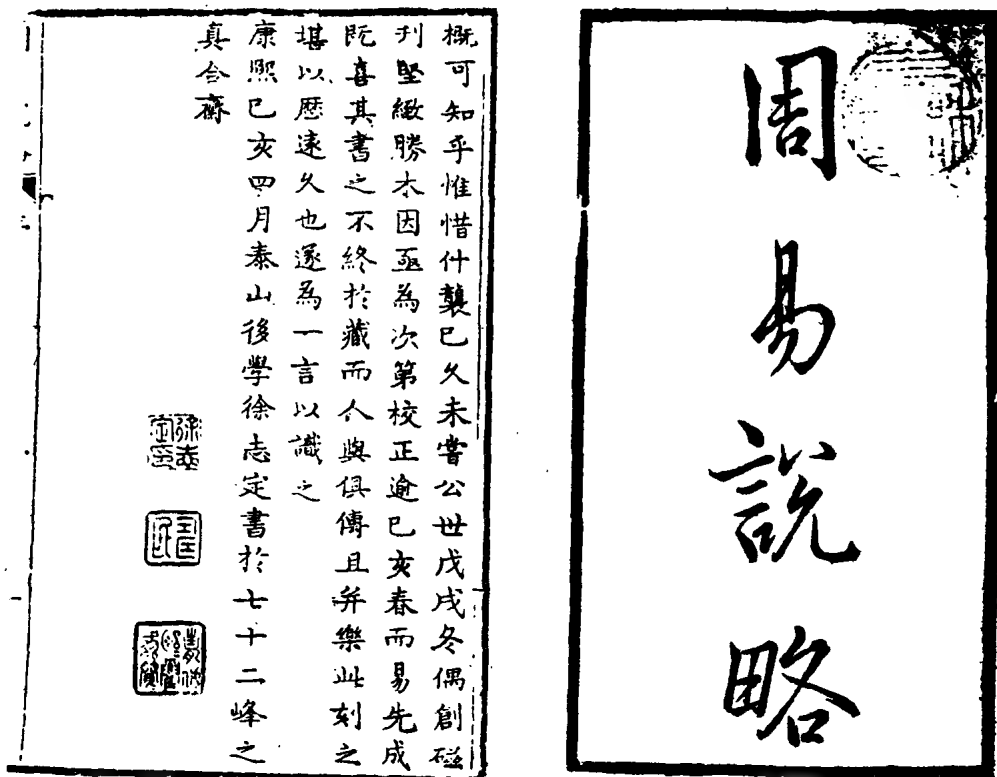 周易說略
概可知乎惟惜什襲已久未嘗公世戊戌冬偶創磁
刋堅緻勝木因亟為次第校正逾己亥春而易先成
旣喜其書之不終於藏而人與俱傳且并樂此刻之
堪以歷遠久也遂為一言以識之
康熙己亥四月泰山後學徐志定書於七十二峰之
真合齋